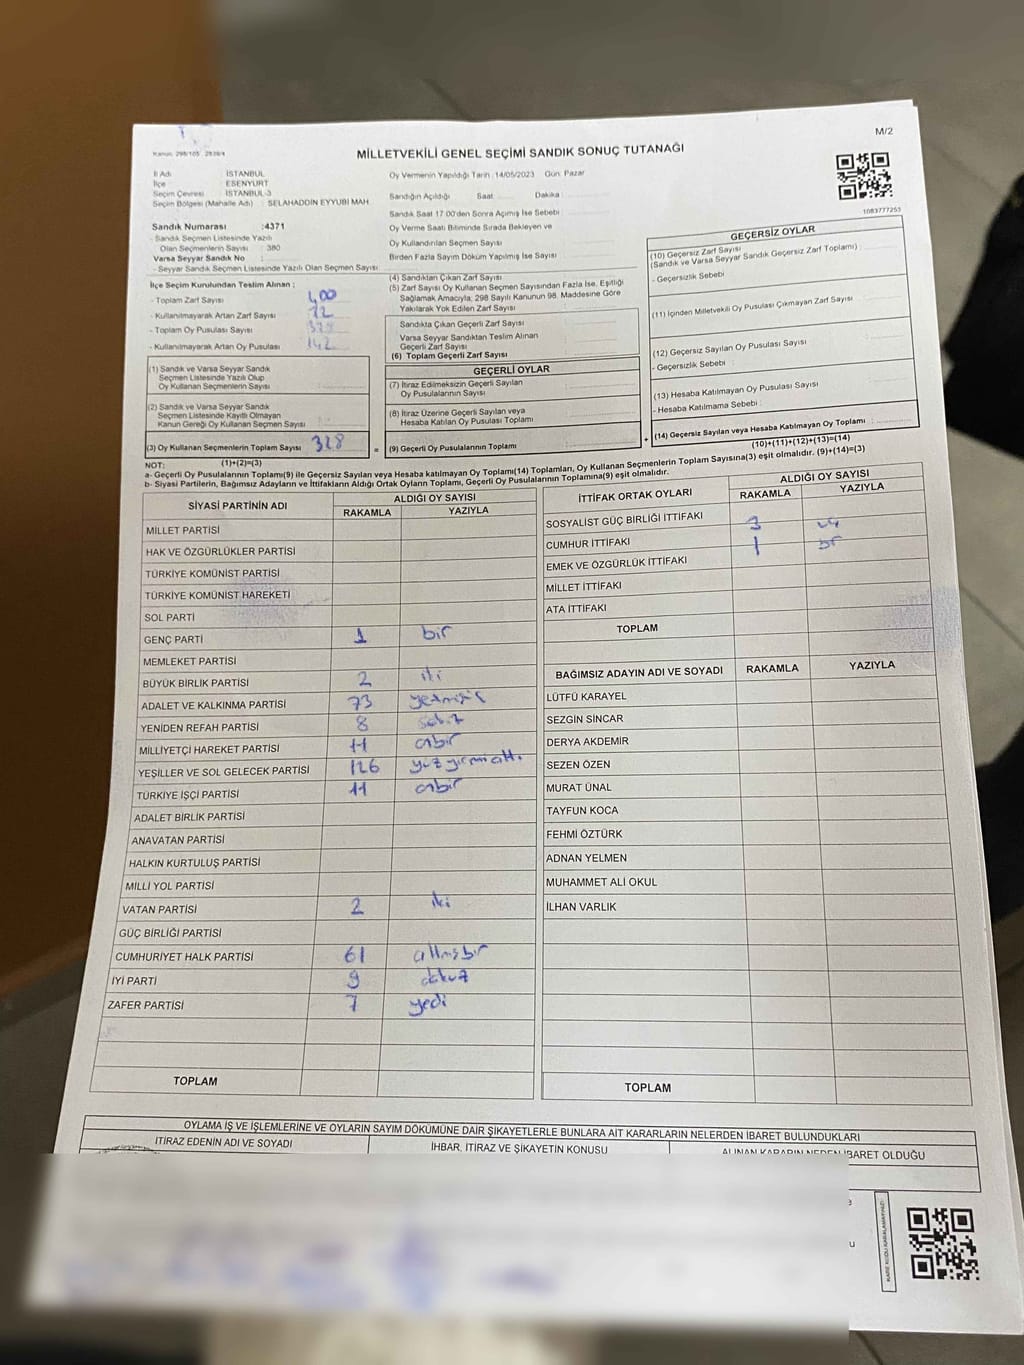 M/2
Kanun: 298/105 , 2839/4
MİLLETVEKİLİ GENEL SEÇİMİ SANDIK SONUÇ TUTANAĞI
1083777253
İl Adı İSTANBUL
İlçe ESENYURT
Seçim Çevresi İSTANBUL-3
Seçim Bölgesi (Mahalle Adı) : SELAHADDİN EYYUBİ MAH
Oy Vermenin Yapıldığı Tarih : 14/05/2023 Gün: Pazar
Sandığın Açıldığı Saat Dakika
Sandık Saat 17:00'den Sonra Açımış İse Sebebi :
Oy Verme Saati Bitiminde Sırada Bekleyen ve
Oy Kullandırılan Seçmen Sayısı
Birden Fazla Sayım Döküm Yapılmış İse Sayısı :
Sandık Numarası :4371
- Sandık Seçmen Listesinde Yazılı
Olan Seçmenlerin Sayısı : 380
Varsa Seyyar Sandık No
- Seyyar Sandık Listesinde Yazılı Olan Seçmen Sayısı
İlçe Seçim Kurulundan Teslim Alınan ;
- Toplam Zarf Sayısı 400
- Kullanılmayarak Artan Zarf Sayısı 72
- Toplam Oy Pusulası Sayısı
- Kullanılmayarak Artan Oy Pusulası 142
(4) Sandıktan Çıkan Zarf Sayısı
(5) Zarf Sayısı Oy Kullanan Seçmen Sayısından Fazla İse, Eşitliği
Sağlamak Amacıyla; 298 Sayılı Kanunun 98. Maddesine Göre
Yakılarak Yok Edilen Zarf Sayısı
Sandıkta Çıkan Geçerli Zarf Sayısı
Varsa Seyyar Sandıktan Teslim Alınan
Geçerli Zarf Sayısı
(6) Toplam Geçerli Zarf Sayısı
(1) Sandık ve Varsa Seyyar Sandık
Seçmen Listesinde Yazılı Olup
Oy Kullanan Seçmenlerin Sayısı
(2) Sandık ve Varsa Seyyar Sandık
Seçmen Listesinde Kayıtlı Olmayan
Kanun Gereği Oy Kullanan Seçmen Sayısı
(3) Oy Kullanan Seçmenlerin Toplam Sayısı 328 =
(1)+(2)=(3)
GEÇERLİ OYLAR
(7) İtiraz Edilmeksizin Geçerli Sayılan
Oy Pusulalarının Sayısı
(8) İtiraz Üzerine Geçerli Sayılan veya
Hesaba Katılan Oy Pusulası Toplamı
(9) Geçerli Oy Pusulalarının Toplamı +
GEÇERSİZ OYLAR
(10) Geçersiz Zarf Sayısı
(Sandık ve Varsa Seyyar Sandık Geçersiz Zarf Toplamı) :
- Geçersizlik Sebebi
(11) İçinden Milletvekili Oy Pusulası Çıkmayan Zarf Sayısı
(12) Geçersiz Sayılan Oy Pusulası Sayısı
- Geçersizlik Sebebi :
(13) Hesaba Katılmayan Oy Pusulası Sayısı
- Hesaba Katılmama Sebebi :
(14) Geçersiz Sayılan veya Hesaba Katılmayan Oy Toplamı :
(10)+(11)+(12)+(13)=(14)
NOT:
a- Geçerli Oy Pusulalarının Toplamı(9) ile Geçersiz Sayılan veya Hesaba katılmayan Oy Toplamı(14) Toplamları, Oy Kullanan Seçmenlerin Toplam Sayısına(3) eşit olmalıdır. (9)+(14)=(3)
b- Siyasi Partilerin, Bağımsız Adayların ve İttifakların Aldığı Ortak Oyların Toplamı, Geçerli Oy Pusulalarının Toplamına(9) eşit olmalıdır.
SİYASİ PARTİNİN ADI ALDIĞI OY SAYISI
RAKAMLA YAZIYLA
MİLLET PARTİSİ
HAK VE ÖZGÜRLÜKLER PARTİSİ
TÜRKİYE KOMÜNİST PARTİSİ
TÜRKİYE KOMÜNİST HAREKETİ
SOL PARTİ
GENÇ PARTİ 1 bir
MEMLEKET PARTİSİ
BÜYÜK BİRLİK PARTİSİ 2 iki
ADALET VE KALKINMA PARTİSİ 73 yetmişüç
YENİDEN REFAH PARTİSİ 8 sekiz
MİLLİYETÇİ HAREKET PARTİSİ 11 onbir
YEŞİLLER VE SOL GELECEK PARTİSİ 126 yüzyirmialtı
TÜRKİYE İŞÇİ PARTİSİ 11 onbir
ADALET BİRLİK PARTİSİ
ANAVATAN PARTİSİ
HALKIN KURTULUŞ PARTİSİ
MİLLİ YOL PARTİSİ
VATAN PARTİSİ 2 iki
GÜÇ BİRLİĞİ PARTİSİ
CUMHURİYET HALK PARTİSİ 61 altmışbir
İYİ PARTİ 9 dokuz
ZAFER PARTİSİ 7 yedi
TOPLAM
İTTİFAK ORTAK OYLARI ALDIĞI OY SAYISI
RAKAMLA YAZIYLA
SOSYALİST GÜÇ BİRLİĞİ İTTİFAKI
CUMHUR İTTİFAKI 3 üç
EMEK VE ÖZGÜRLÜK İTTİFAKI 1 bir
MİLLET İTTİFAKI
ATA İTTİFAKI
TOPLAM
BAĞIMSIZ ADAYIN ADI VE SOYADI RAKAMLA YAZIYLA
LÜTFÜ KARAYEL
SEZGİN SİNCAR
DERYA AKDEMİR
SEZEN ÖZEN
MURAT ÜNAL
TAYFUN KOCA
FEHMİ ÖZTÜRK
ADNAN YELMEN
MUHAMMET ALİ OKUL
İLHAN VARLIK
TOPLAM
OYLAMA İŞ VE İŞLEMLERİNE VE OYLARIN SAYIM DÖKÜMÜNE DAİR ŞİKAYETLERLE BUNLARA AİT KARARLARIN NELERDEN İBARET BULUNDUKLARI
İTİRAZ EDENİN ADI VE SOYADI İHBAR, İTİRAZ VE ŞİKAYETİN KONUSU ALINAN KARARIN NEDEN İBARET OLDUĞU
KARE KODU KARALAMAYINIZ!